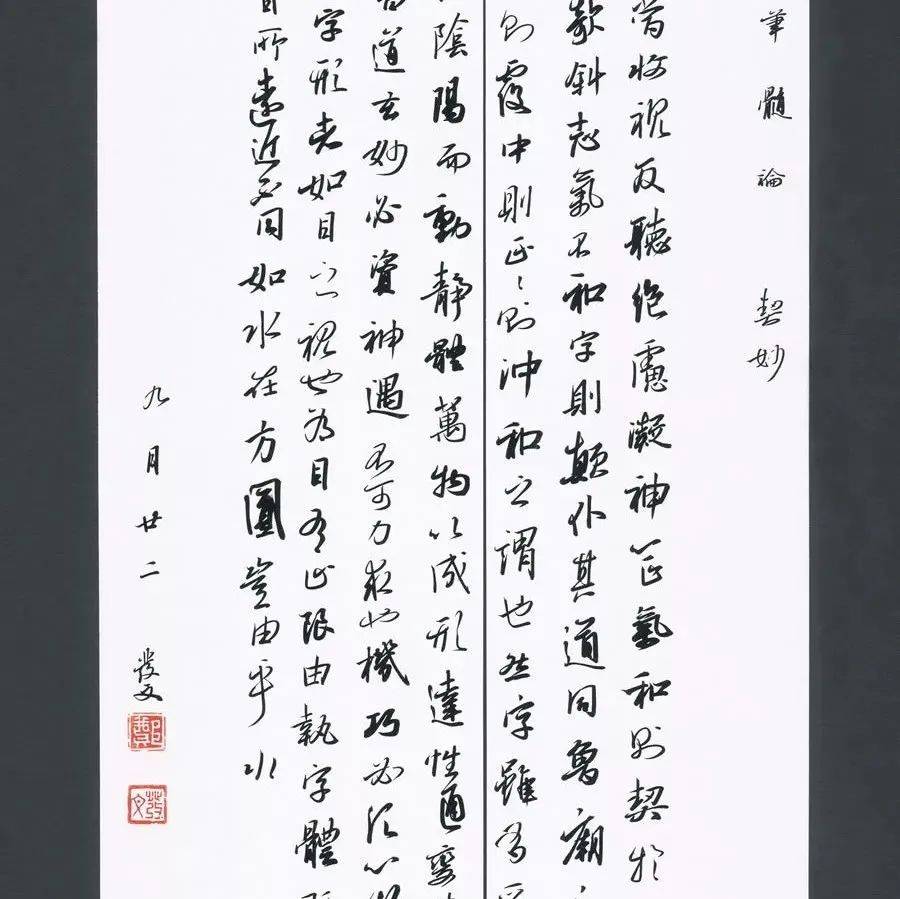 筆髓論 契妙
當收視反聽絕慮凝神心正氣和則契於
欹斜志氣不和字則顛仆其道同魯廟
則覆中則正〻則沖和之謂也然字雖有
陰陽而動靜體萬物以成形達性通變
道玄妙必資神遇不可力求也機巧必須心
字形者如目之視也為目有止限由執字體
目所遠近不同如水在方圓豈由乎水
九月廿二 發文
鄭
發文